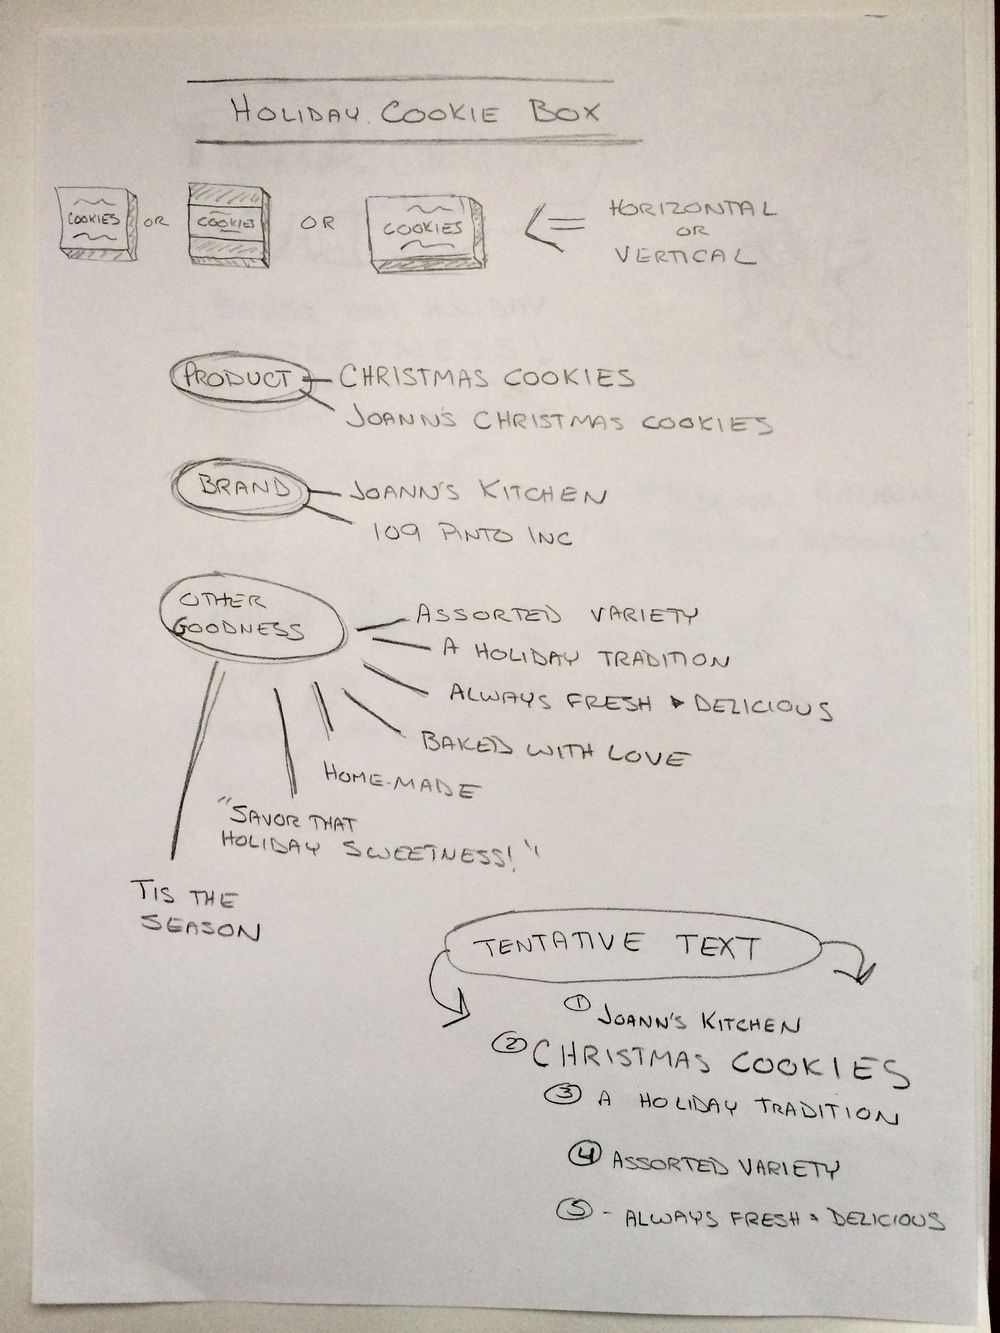 HOLIDAY COOKIE BOX
COOKIES OR COOKIES OR COOKIES
HORIZONTAL
OR
VERTICAL
PRODUCT
CHRISTMAS COOKIES
JOANN'S CHRISTMAS COOKIES
BRAND
JOANN'S KITCHEN
109 PINTO INC
OTHER
GOODNESS
ASSORTED VARIETY
A HOLIDAY TRADITION
ALWAYS FRESH & DELICIOUS
BAKED WITH LOVE
HOME-MADE
"SAVOR THAT
HOLIDAY SWEETNESS!"
TIS THE
SEASON
TENTATIVE TEXT
① JOANN'S KITCHEN
② CHRISTMAS COOKIES
③ A HOLIDAY TRADITION
④ ASSORTED VARIETY
⑤ - ALWAYS FRESH & DELICIOUS